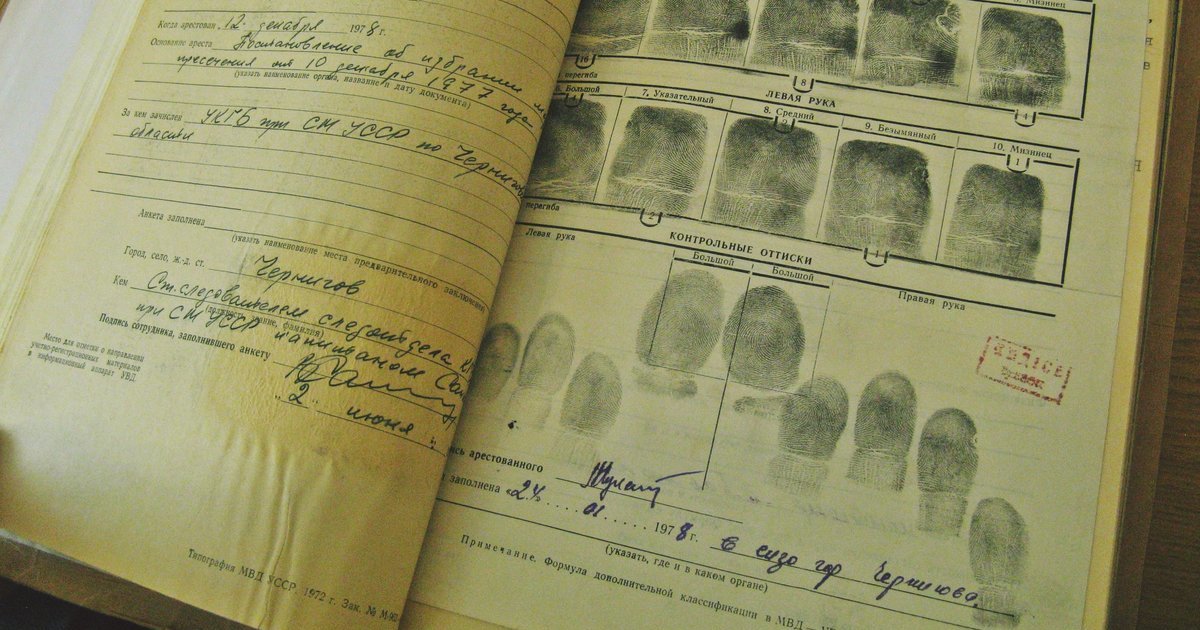 Когда арестован 12 декабря 1978 г.
Основание ареста Постановление об избрании
пресечения от 10 декабря 1977 года
(указать наименование органа, название и дату документа)
За кем зачислен УКГБ при СМ УССР по Чернигов
области
Анкета заполнена
(указать наименование места предварительного заключения)
Город, село, ж.-д. ст. Чернигов
Кем Ст. следователем следотдела
(должность, звание, фамилия)
при СМ УССР капитаном
Подпись сотрудника, заполнившего анкету
„2“ июня
Место для отметки о направлении
учетно-регистрационных материалов
в информационный аппарат УВД.
Типография МВД УССР. 1972 г. Зак. №
Мизинец
10
8
4
перегиба
ЛЕВАЯ РУКА
6. Большой
7. Указательный
8. Средний
9. Безымянный
10. Мизинец
4
2
1
перегиба
2
1
КОНТРОЛЬНЫЕ ОТТИСКИ
Левая рука
Большой
Большой
Правая рука
арестованного
заполнена «24» 01 1978 г. в сизо гор Чернигова.
(указать, где и в каком органе)
Примечание. Формула дополнительной классификации в МВД —